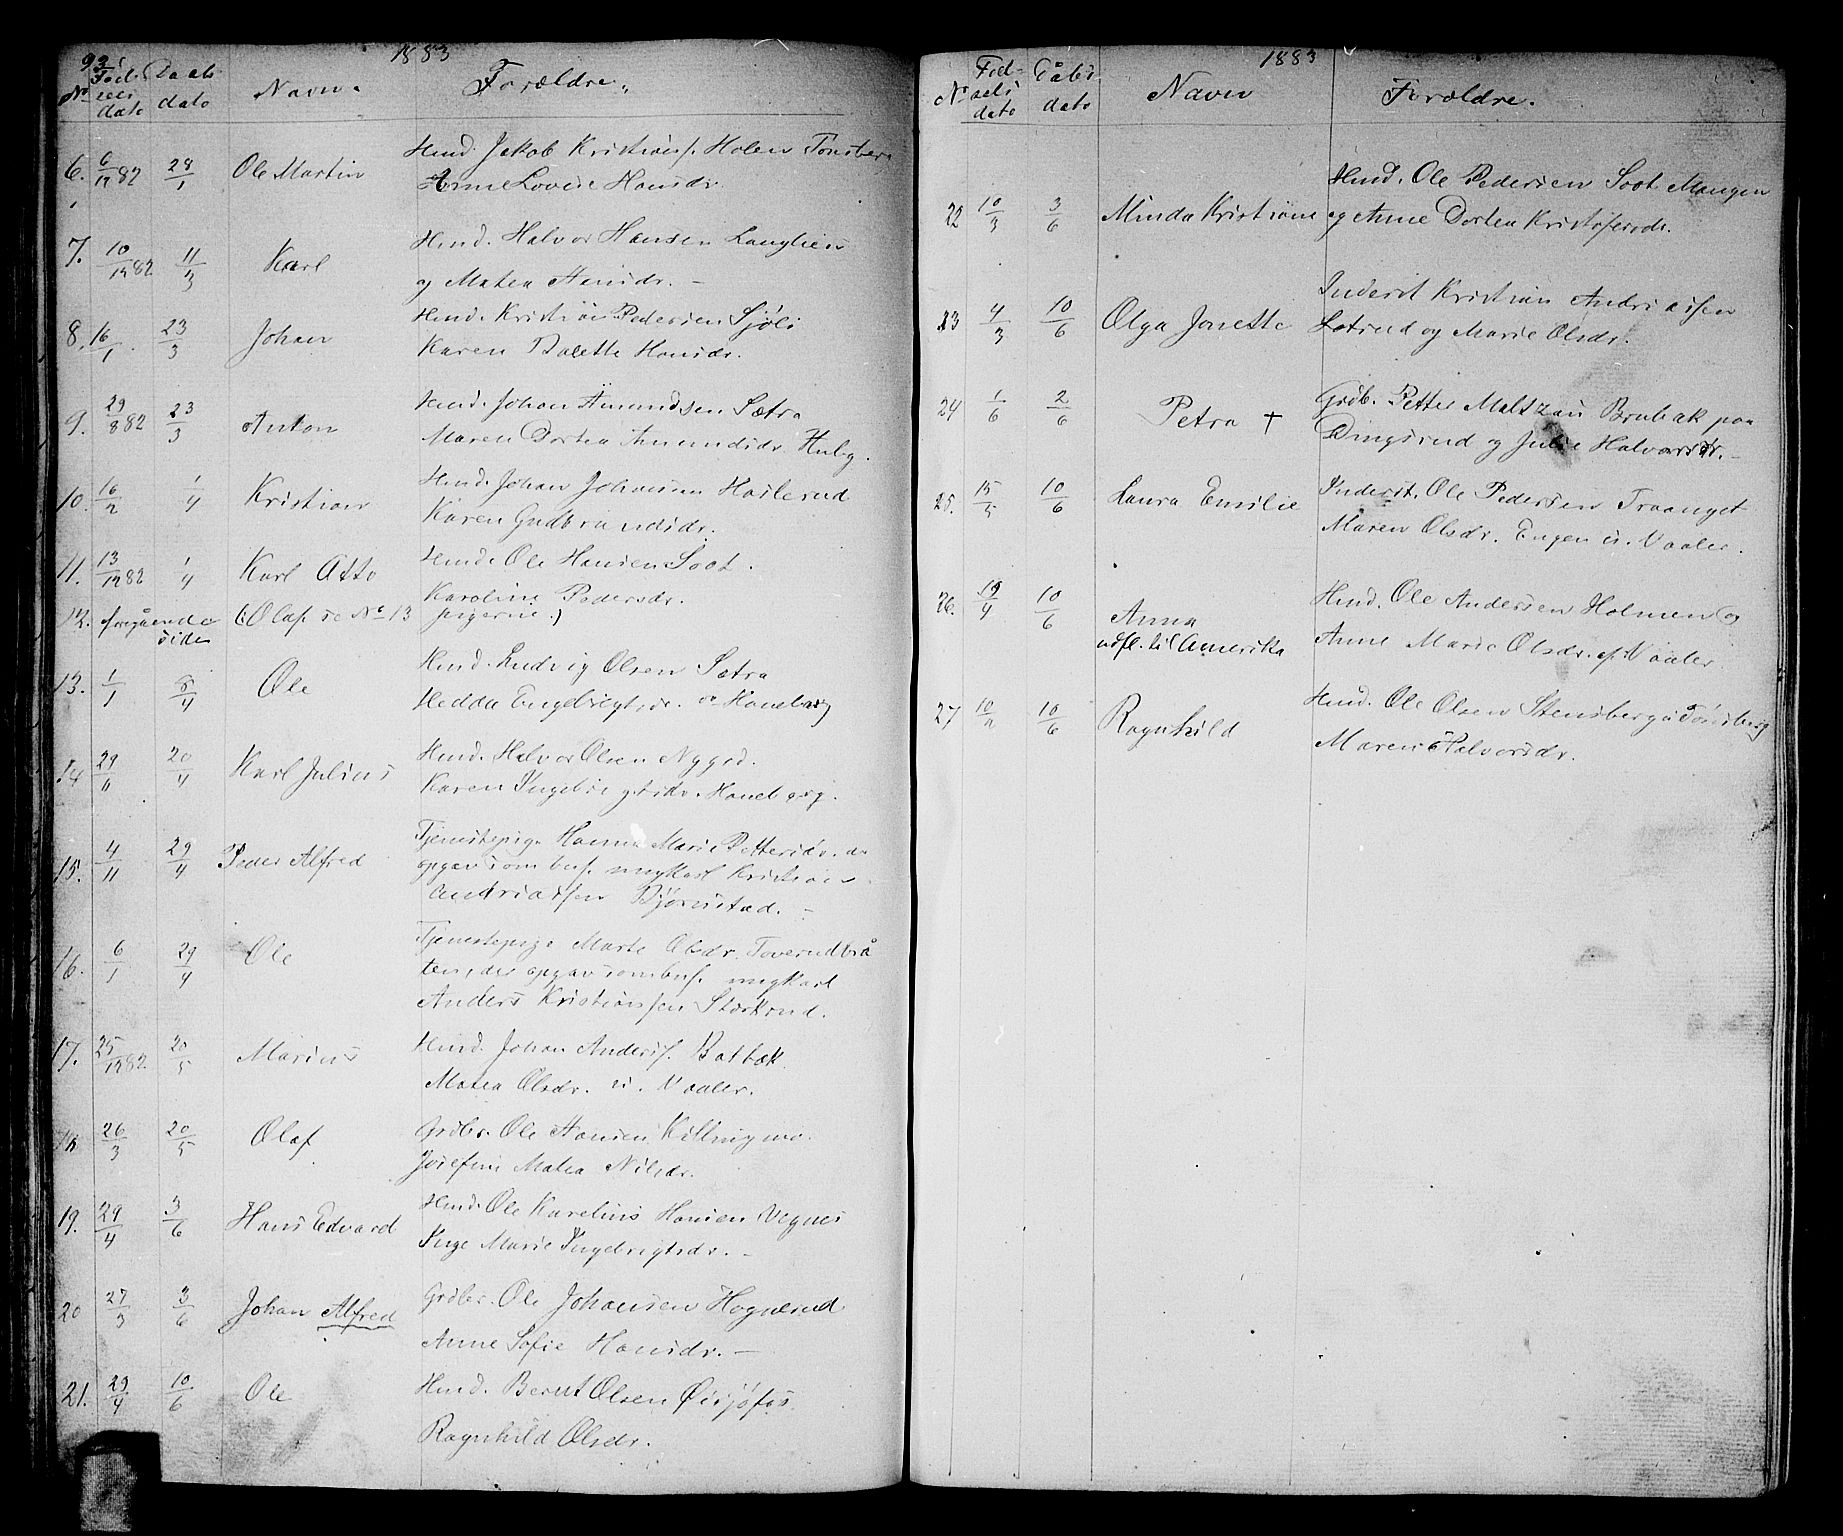 93
1883
No Fødselsdato Daabsdato Navn. Forældre.
6. 6/12 82 28/1 Ole Martin Hmd. Jakob Kristians. Holen Tonsberg
Anne Lovise Hansdr.
7. 10/12 82 11/3 Karl Hmd. Halvor Hansen Langlien
og Matea Hansdr. –
8. 16/1 23/3 Johan Hmd. Kristian Pedersen Sjøli
Karen Dolette Hansdr.
9. 29/8 82 23/3 Anton Hmd. Johan Amundsen Sætra
Maren Dortea Amundsdr. Huby.
10. 16/2 1/4 Kristian Hmd. Johan Johansen Haslerud
Karen Gudbrandsdr.
11. 13/12 82 1/4 Karl Otto Hmd. Ole Hansen Soot.
Karoline Pedersdr.
12. foregående side (: Olaf se No 13 pigerne.)
13. 1/1 8/4 Ole Hmd. Ludvig Olsen Sætra
Hedda Engebrigtsdr. Haneborg
14 29/11 20/4 Karl Julius Hmd. Halvor Olsen Nygrd.
Karen Ingebrigtsdr. Haneborg.
15. 4/11 29/4 Peder Alfred Tjenestepige Hanna Marie Pettersdr. der
opgav som bf. ungkarl Kristian
Andriassen Bjørnstad. –
16. 6/1 29/4 Ole Tjenestepige Marte Olsdr. Toverudbrå
ten, der opgav som bf. ungkarl
Anders Kristiansen Storkrud.
17. 25/12 82. 20/5 Marius Hmd. Johan Anders. Batbæk
Matea Olsdr. u. Vaaler.
18 26/3 20/5 Olaf Grdbr. Ole Hansen Killingmo.
Josefine Matea Nilsdr.
19. 29/4 3/6 Hans Edvard Hmd. Ole Karelius Hansen Vegnes
Inge Marie Ingebrigtsdr. –
20 27/3 3/6 Johan Alfred Grdbr. Ole Johansen Hognerud
Anne Sofie Hansdr. –
21. 29/4 10/6 Ole Hmd. Bernt Olsen Øisjøfos.
Ragnhild Olsdr.
1883
No Fødselsdato Dåbsdato Navn Forældre.
22 10/3 3/6 Minda Kristiane Hmd. Ole Pedersen Soot Mangen
og Anne Dortea Kristofersdr.
23 4/3 10/6 Olga Jonette Inderst Kristian Andriassen
Lotrud og Marie Olsdr.
24 1/6 2/6 Petra † Grdb. Petter Maltzau Brubak paa
Dingsrud og Julie Halvorsdr. –
25. 15/5 10/6 Laura Emilie Inderst. Ole Pedersen Traanget
Maren Olsdr. Engen u. Vaaler.
26. 19/4 10/6 Anna Hmd. Ole Andersen Holmen og
udfl. til Amerika Anne Marie Olsdr. af Vaaler
27 10/2 10/6 Ragnhild Hmd. Ole Olsen Stensberg i Tonsberg
Maren Halvorsdr.